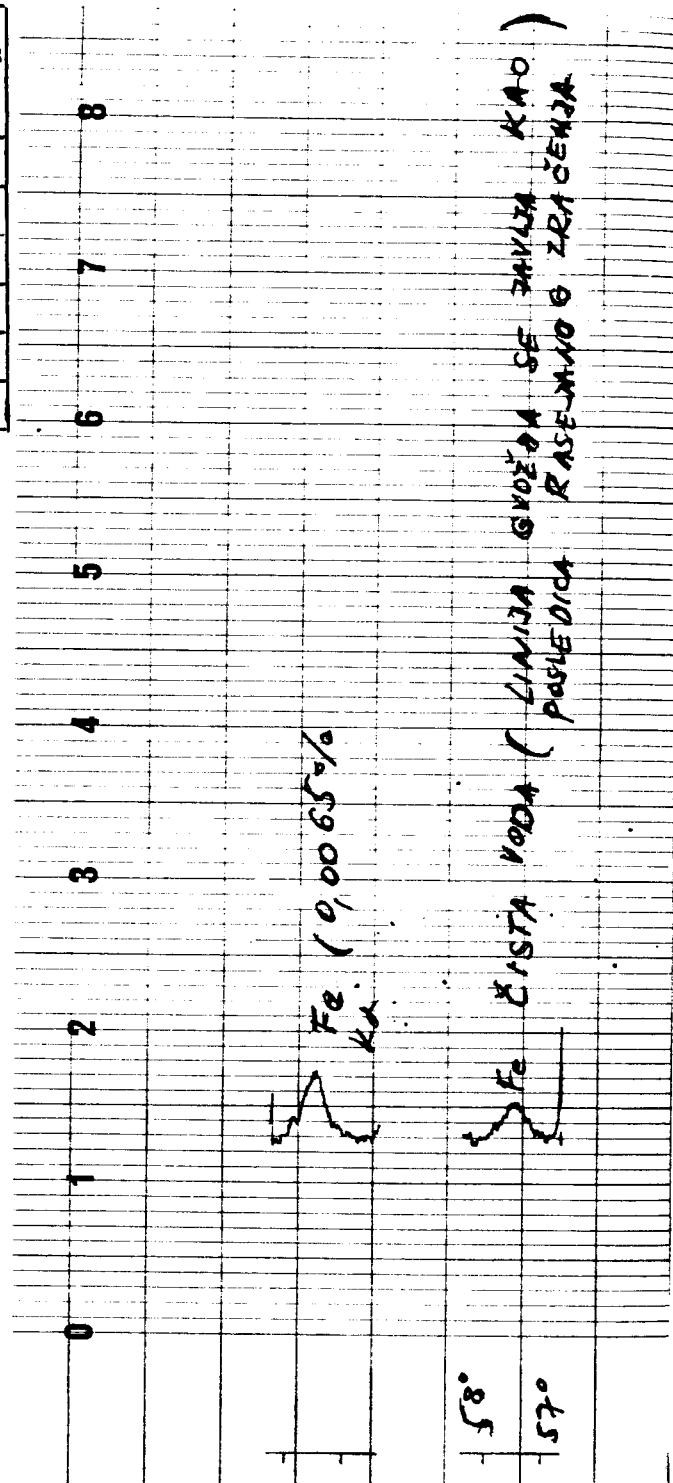 0 1 2 3 4 5 6 7 8
Fe (0,0065%
Kα
58°
57°
Fe ČISTA VODA ( LINIJA GVOŽĐA SE JAVLJA KAO
POSLEDICA RASEJANOG ZRAČENJA )